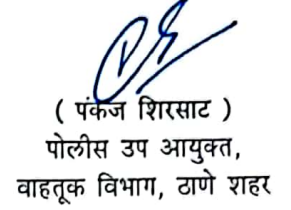 ( पंकज शिरसाट )
पोलीस उप आयुक्त,
वाहतूक विभाग, ठाणे शहर